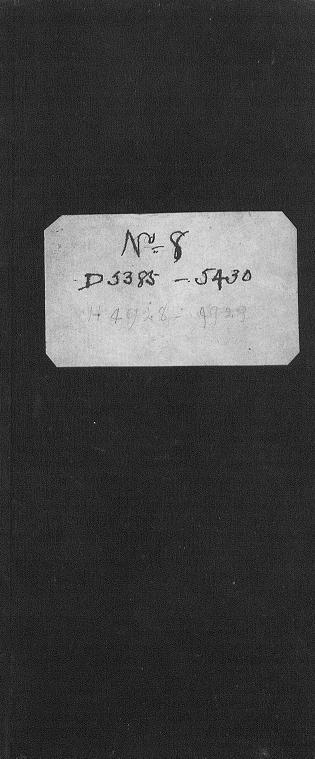 No= 8
D 5385 - 5430
H 4928 - 4929